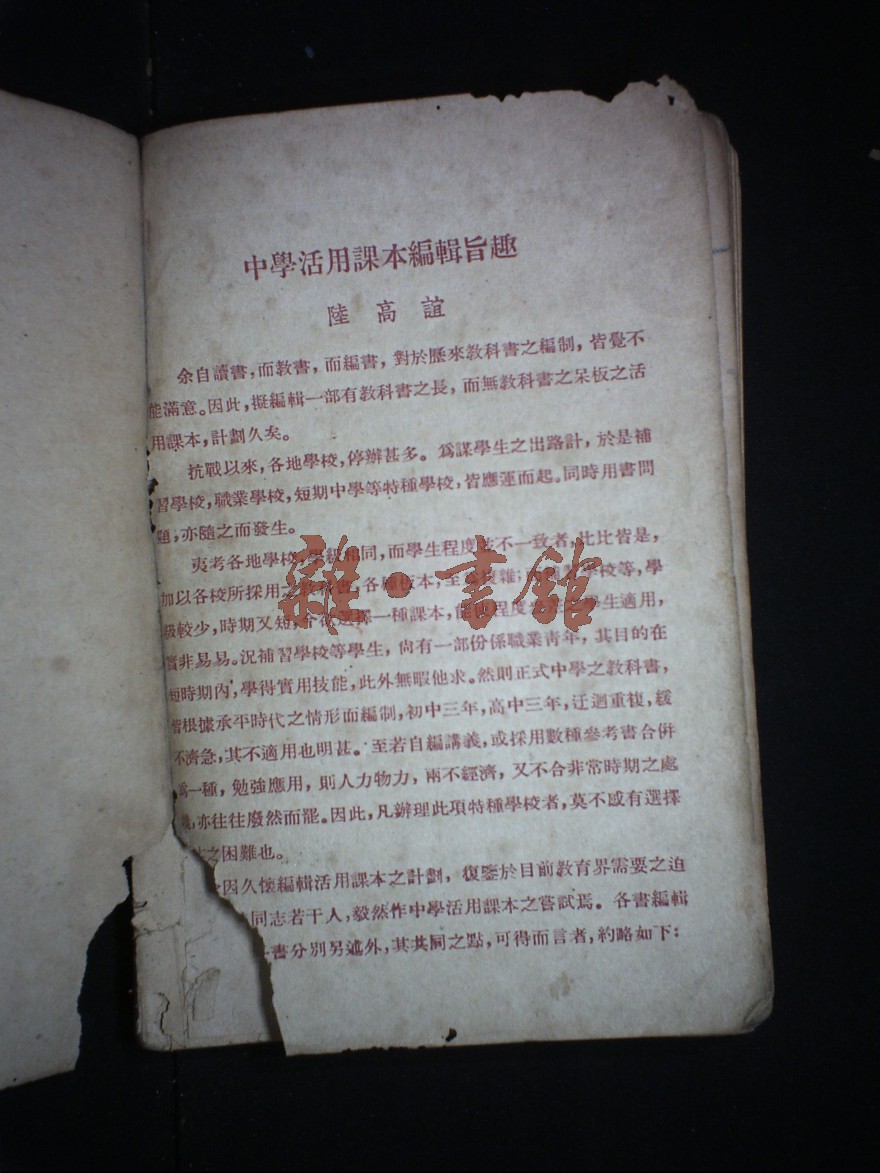 中學活用課本編輯旨趣
陸高誼
余自讀書，而敎書，而編書，對於歷來敎科書之編制，皆覺不
能滿意。因此，擬編輯一部有敎科書之長，而無敎科書之呆板之活
用課本，計劃久矣。
抗戰以來，各地學校，停辦甚多。爲謀學生之出路計，於是補
習學校，職業學校，短期中學等特種學校，皆應運而起。同時用書問
題，亦隨之而發生。
夷考各地學校，學級相同，而學生程度並不一致者，比比皆是，
加以各校所採用之敎科書，各種板本，至爲複雜；
學校等，學
級較少，時期又短，
選擇一種課本，能使程度
學生適用，
實非易易。況補習學校等學生，尙有一部份係職業靑年，其目的在
短時期內，學得實用技能，此外無暇他求。然則正式中學之敎科書，
皆根據承平時代之情形而編制，初中三年，高中三年，迂迴重複，緩
不濟急，其不適用也明甚。至若自編講義，或採用數種參考書合倂
爲一種，勉強應用，則人力物力，兩不經濟，又不合非常時期之處
，亦往往廢然而罷。因此，凡辦理此項特種學校者，莫不感有選擇
之困難也。
因久懷編輯活用課本之計劃，復鑒於目前敎育界需要之迫
同志若干人，毅然作中學活用課本之嘗試焉。各書編輯
書分別另述外，其共同之點，可得而言者，約略如下：
雜·書館